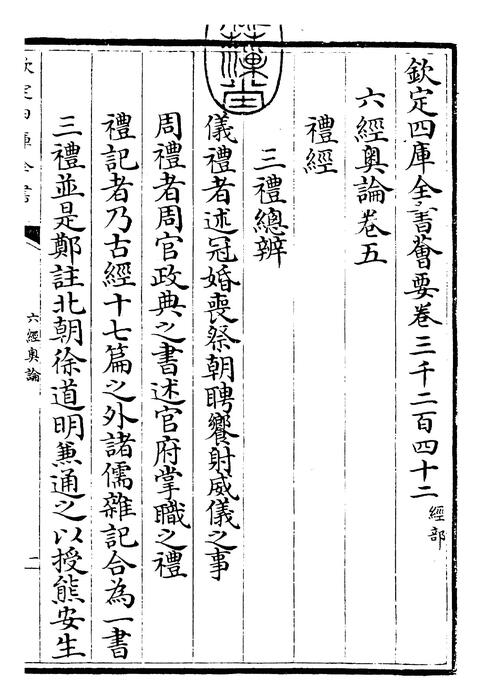 欽定四庫全書薈要卷三千二百四十二 經部
六經奧論卷五
禮經
三禮總辨
儀禮者述冠婚喪祭朝聘饗射威儀之事
周禮者周官政典之書述官府掌職之禮
禮記者乃古經十七篇之外諸儒雜記合為一書
三禮並是鄭註北朝徐道明兼通之以授熊安生
欽定四庫全書
六經奧論
二